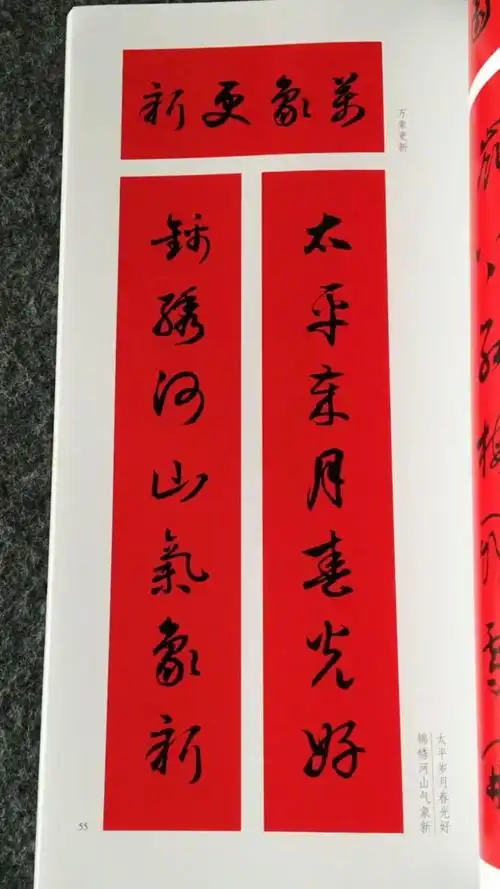 萬象更新
万象更新
太平歲月春光好
錦绣河山氣象新
太平岁月春光好
锦绣河山气象新
55